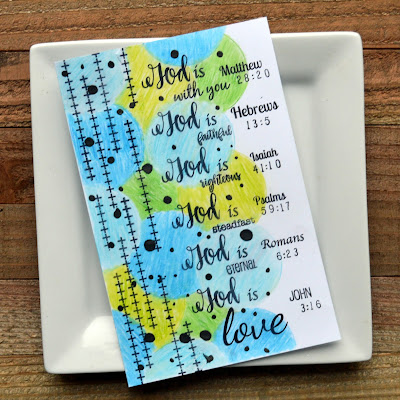 God is with you Matthew 28:20
God is faithful Hebrews 13:5
God is righteous Isaiah 41:10
God is steadfast Psalms 59:17
God is eternal Romans 6:23
God is love JOHN 3:16